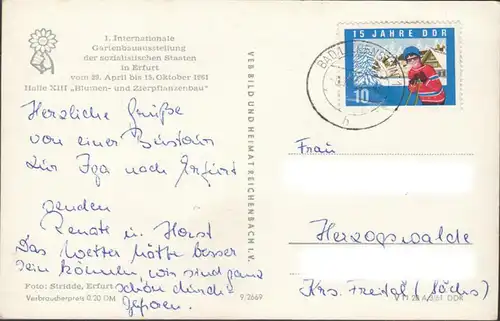 1. Internationale
Gartenbauausstellung
der sozialistischen Staaten
in Erfurt
vom 28. April bis 15. Oktober 1961
Halle XIII „Blumen- und Zierpflanzenbau"
Herzliche Grüße
von einer Bustour
zur Iga nach Erfurt
senden
Renate u. Horst
Das Wetter hätte besser
sein können, wir sind ganz
schön durch-
gefroren.
Foto: Stridde, Erfurt
Verbraucherpreis 0,20 DM
9/2669
VEB BILD UND HEIMAT REICHENBACH I. V.
15 JAHRE DDR
10
BAD
h
Frau
Herzogswalde
Krs. Freital (Sachs)
DDR